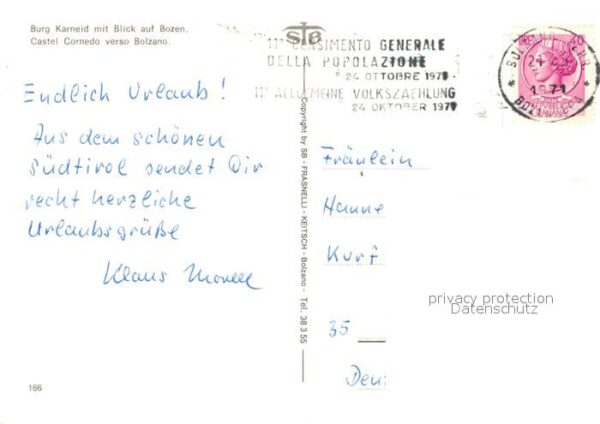 Burg Karneid mit Blick auf Bozen.
Castel Cornedo verso Bolzano.
11° CENSIMENTO GENERALE
DELLA POPOLAZIONE
24 OTTOBRE 1971
11° ALLGEMEINE VOLKSZAEHLUNG
24 OKTOBER 1971
1971
Endlich Urlaub!
Aus dem schönen
Südtirol sendet Dir
recht herzliche
Urlaubsgrüße
Klaus
Copyright by SB - FRASNELLI - KEITSCH - Bolzano - Tel. 38 3 55
Fräulein
Hanne
Kurf
35
privacy protection
Datenschutz
166